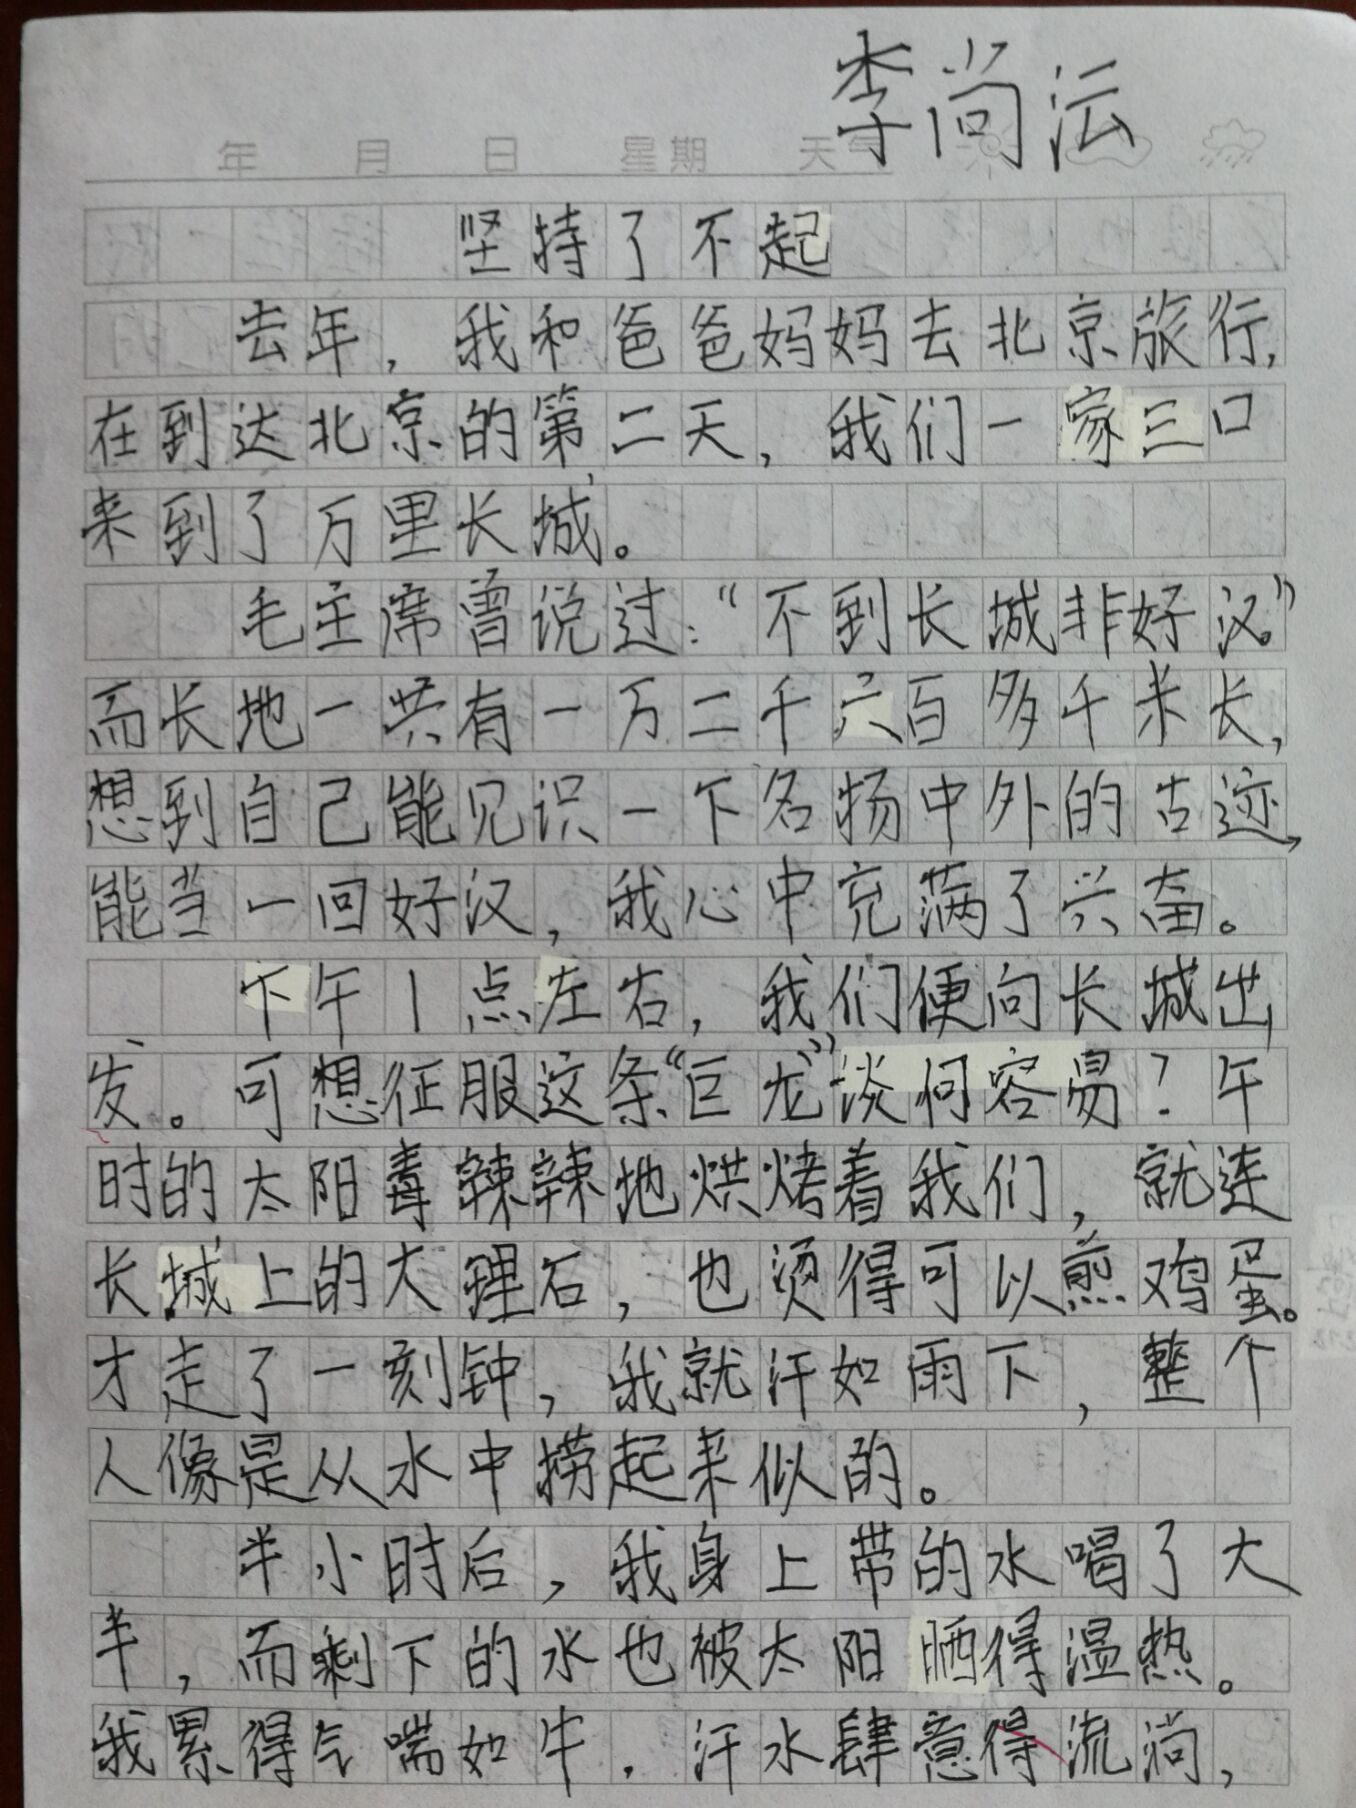 李尚沄
年 月 日 星期 天气
坚持了不起
去年，我和爸爸妈妈去北京旅行，
在到达北京的第二天，我们一家三口
来到了万里长城。
毛主席曾说过：“不到长城非好汉。”
而长地一共有一万二千六百多千米长，
想到自己能见识一下名扬中外的古迹，
能当一回好汉，我心中充满了兴奋。
下午1点左右，我们便向长城出
发。可想征服这条“巨龙”谈何容易？午
时的太阳毒辣辣地烘烤着我们，就连
长城上的大理石，也烫得可以煎鸡蛋。
才走了一刻钟，我就汗如雨下，整个
人像是从水中捞起来似的。
半小时后，我身上带的水喝了大
半，而剩下的水也被太阳晒得温热。
我累得气喘如牛，汗水肆意得流淌，